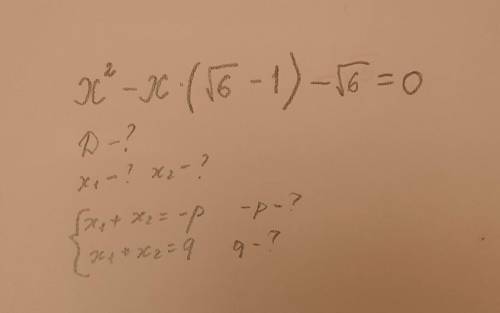 x² - x · (√6 - 1) - √6 = 0
D - ?
x₁ - ? x₂ - ?
{ x₁ + x₂ = -p -p - ?
x₁ * x₂ = q q - ?